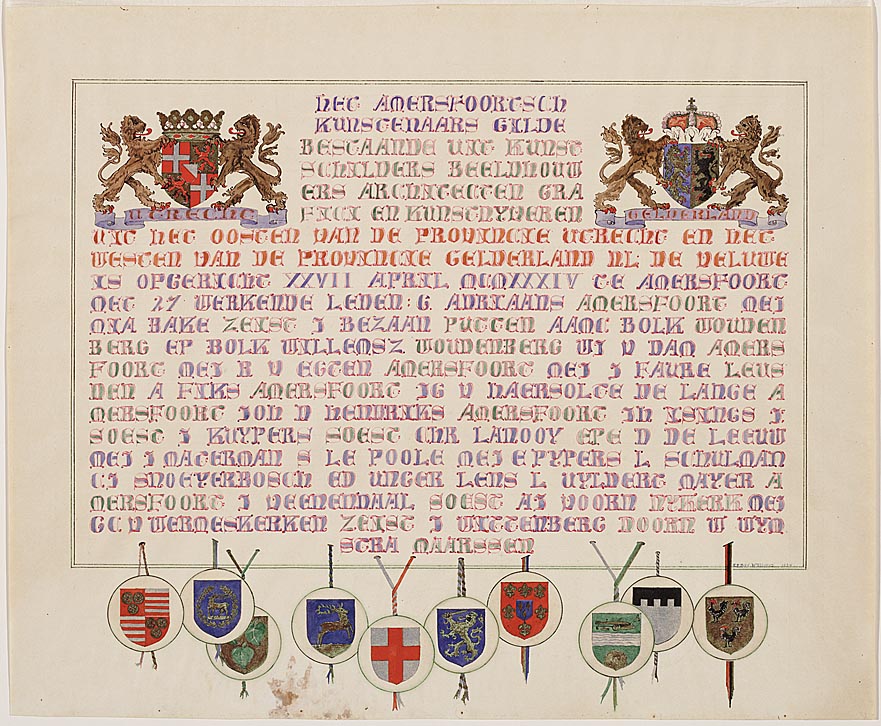 HET AMERSFOORTSCH
KUNSTENAARS GILDE
BESTAANDE UIT KUNST
SCHILDERS BEELDHOUW
ERS ARCHITECTEN GRA
FICI EN KUNSTNYVEREN
UTRECHT
GELDERLAND
UIT HET OOSTEN VAN DE PROVINCIE UTRECHT EN HET
WESTEN VAN DE PROVINCIE GELDERLAND NL: DE VELUWE
IS OPGERICHT XXVII APRIL MCMXXXIV TE AMERSFOORT
MET 27 WERKENDE LEDEN: G ADRIAANS AMERSFOORT MEJ
MIA BAKE ZEIST J BEZAAN PUTTEN AAMC BOLK WOUDEN
BERG EP BOLK WILLEMSZ WOUDENBERG WJ V DAM AMERS
FOORT MEJ R V EGTEN AMERSFOORT MEJ J FAURE LEUS
DEN A FIKS AMERSFOORT JG V HAERSOLTE DE LANGE A
MERSFOORT JOH D HENDRIKS AMERSFOORT JH ISINGS J:
SOEST J KUYPERS SOEST CHR LANOOY EPE D DE LEEUW
MEJ J MATERMAN S LE POOLE MEJ E PYPERS L SCHULMAN
CJ SNOEYERBOSCH ED UNGER LENS L UYLDERT MAYER A
MERSFOORT J VEENENDAAL SOEST AJ VOORN NYKERK MEJ
GC V WERMESKERKEN ZEIST J WITTENBERG DOORN W WYN
STRA MAARSSEN